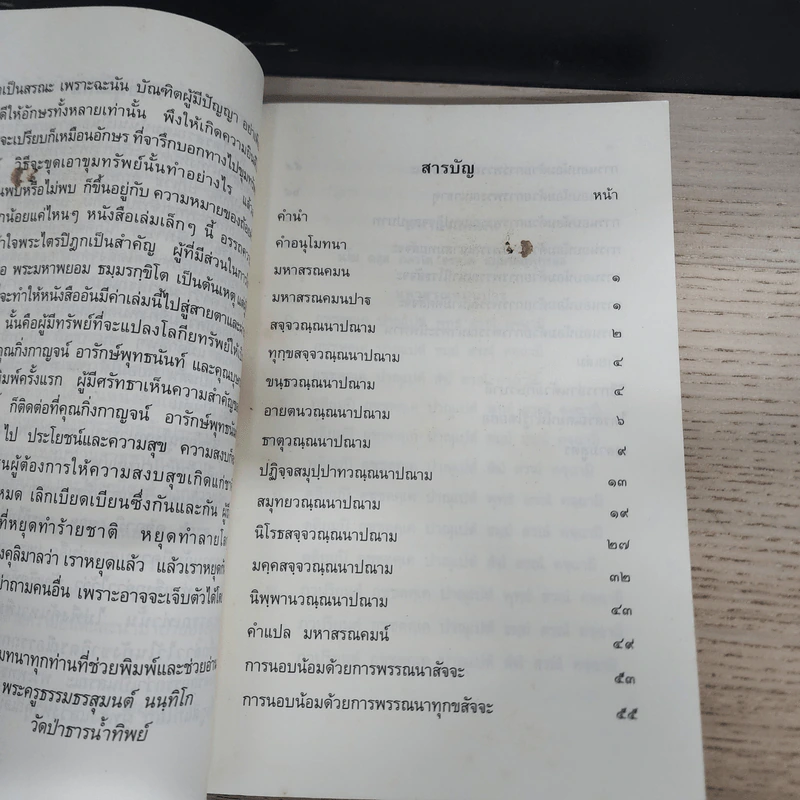 เป็นสรณะ เพราะฉะนั้น บัณฑิตผู้มีปัญญา
ดีให้อักษรทั้งหลายเท่านั้น พึงให้เกิดความ
จะเปรียบก็เหมือนอักษร ที่จารึกบอกทางไปขุม
วิธีจะขุดเอาขุมทรัพย์นั้นทำอย่างไร
พบหรือไม่พบ ก็ขึ้นอยู่กับ ความหมายของ
น้อยแค่ไหนๆ หนังสือเล่มเล็กๆ นี้
ใจพระไตรปิฎกเป็นสำคัญ ผู้ที่มีส่วนใน
พระมหาพยอม ธมฺมรกฺขิโต เป็นต้นเหตุ
จะทำให้หนังสืออันมีค่าเล่มนี้ไปสู่สายตาและ
นั้นคือผู้มีทรัพย์ที่จะแปลงโลกียทรัพย์ให้
คุณกิ่งกาญจน์ อารักษ์พุทธนันท์ และคุณ
พิมพ์ครั้งแรก ผู้มีศรัทธาเห็นความสำคัญ
ก็ติดต่อที่คุณกิ่งกาญจน์ อารักษ์พุทธ
ไป ประโยชน์และความสุข ความสงบ
ผู้ต้องการให้ความสงบสุขเกิดแก่
หมด เลิกเบียดเบียนซึ่งกันและกัน
ที่หยุดทำร้ายชาติ หยุดทำลาย
องคุลิมาลว่า เราหยุดแล้ว แล้วเราหยุด
ถามคนอื่น เพราะอาจจะเจ็บตัวได้
ทนาทุกท่านที่ช่วยพิมพ์และช่วยอ่าน
พระครูธรรมธรสุมนต์ นนฺทิโก
วัดป่าธารน้ำทิพย์
สารบัญ
หน้า
คำนำ
คำอนุโมทนา
มหาสรณคมน ๑
มหาสรณคมนปาฐ ๑
สจฺจวณฺณนาปณาม ๒
ทุกฺขสจฺจวณฺณนาปณาม ๔
ขนฺธวณฺณนาปณาม ๔
อายตนวณฺณนาปณาม ๖
ธาตุวณฺณนาปณาม ๙
ปฏิจฺจสมุปฺปาทวณฺณนาปณาม ๑๓
สมุทยวณฺณนาปณาม ๑๙
นิโรธสจฺจวณฺณนาปณาม ๒๗
มคฺคสจฺจวณฺณนาปณาม ๓๒
นิพฺพานวณฺณนาปณาม ๔๓
คำแปล มหาสรณคมน์ ๔๙
การนอบน้อมด้วยการพรรณนาสัจจะ ๕๓
การนอบน้อมด้วยการพรรณนาทุกขสัจจะ ๕๕